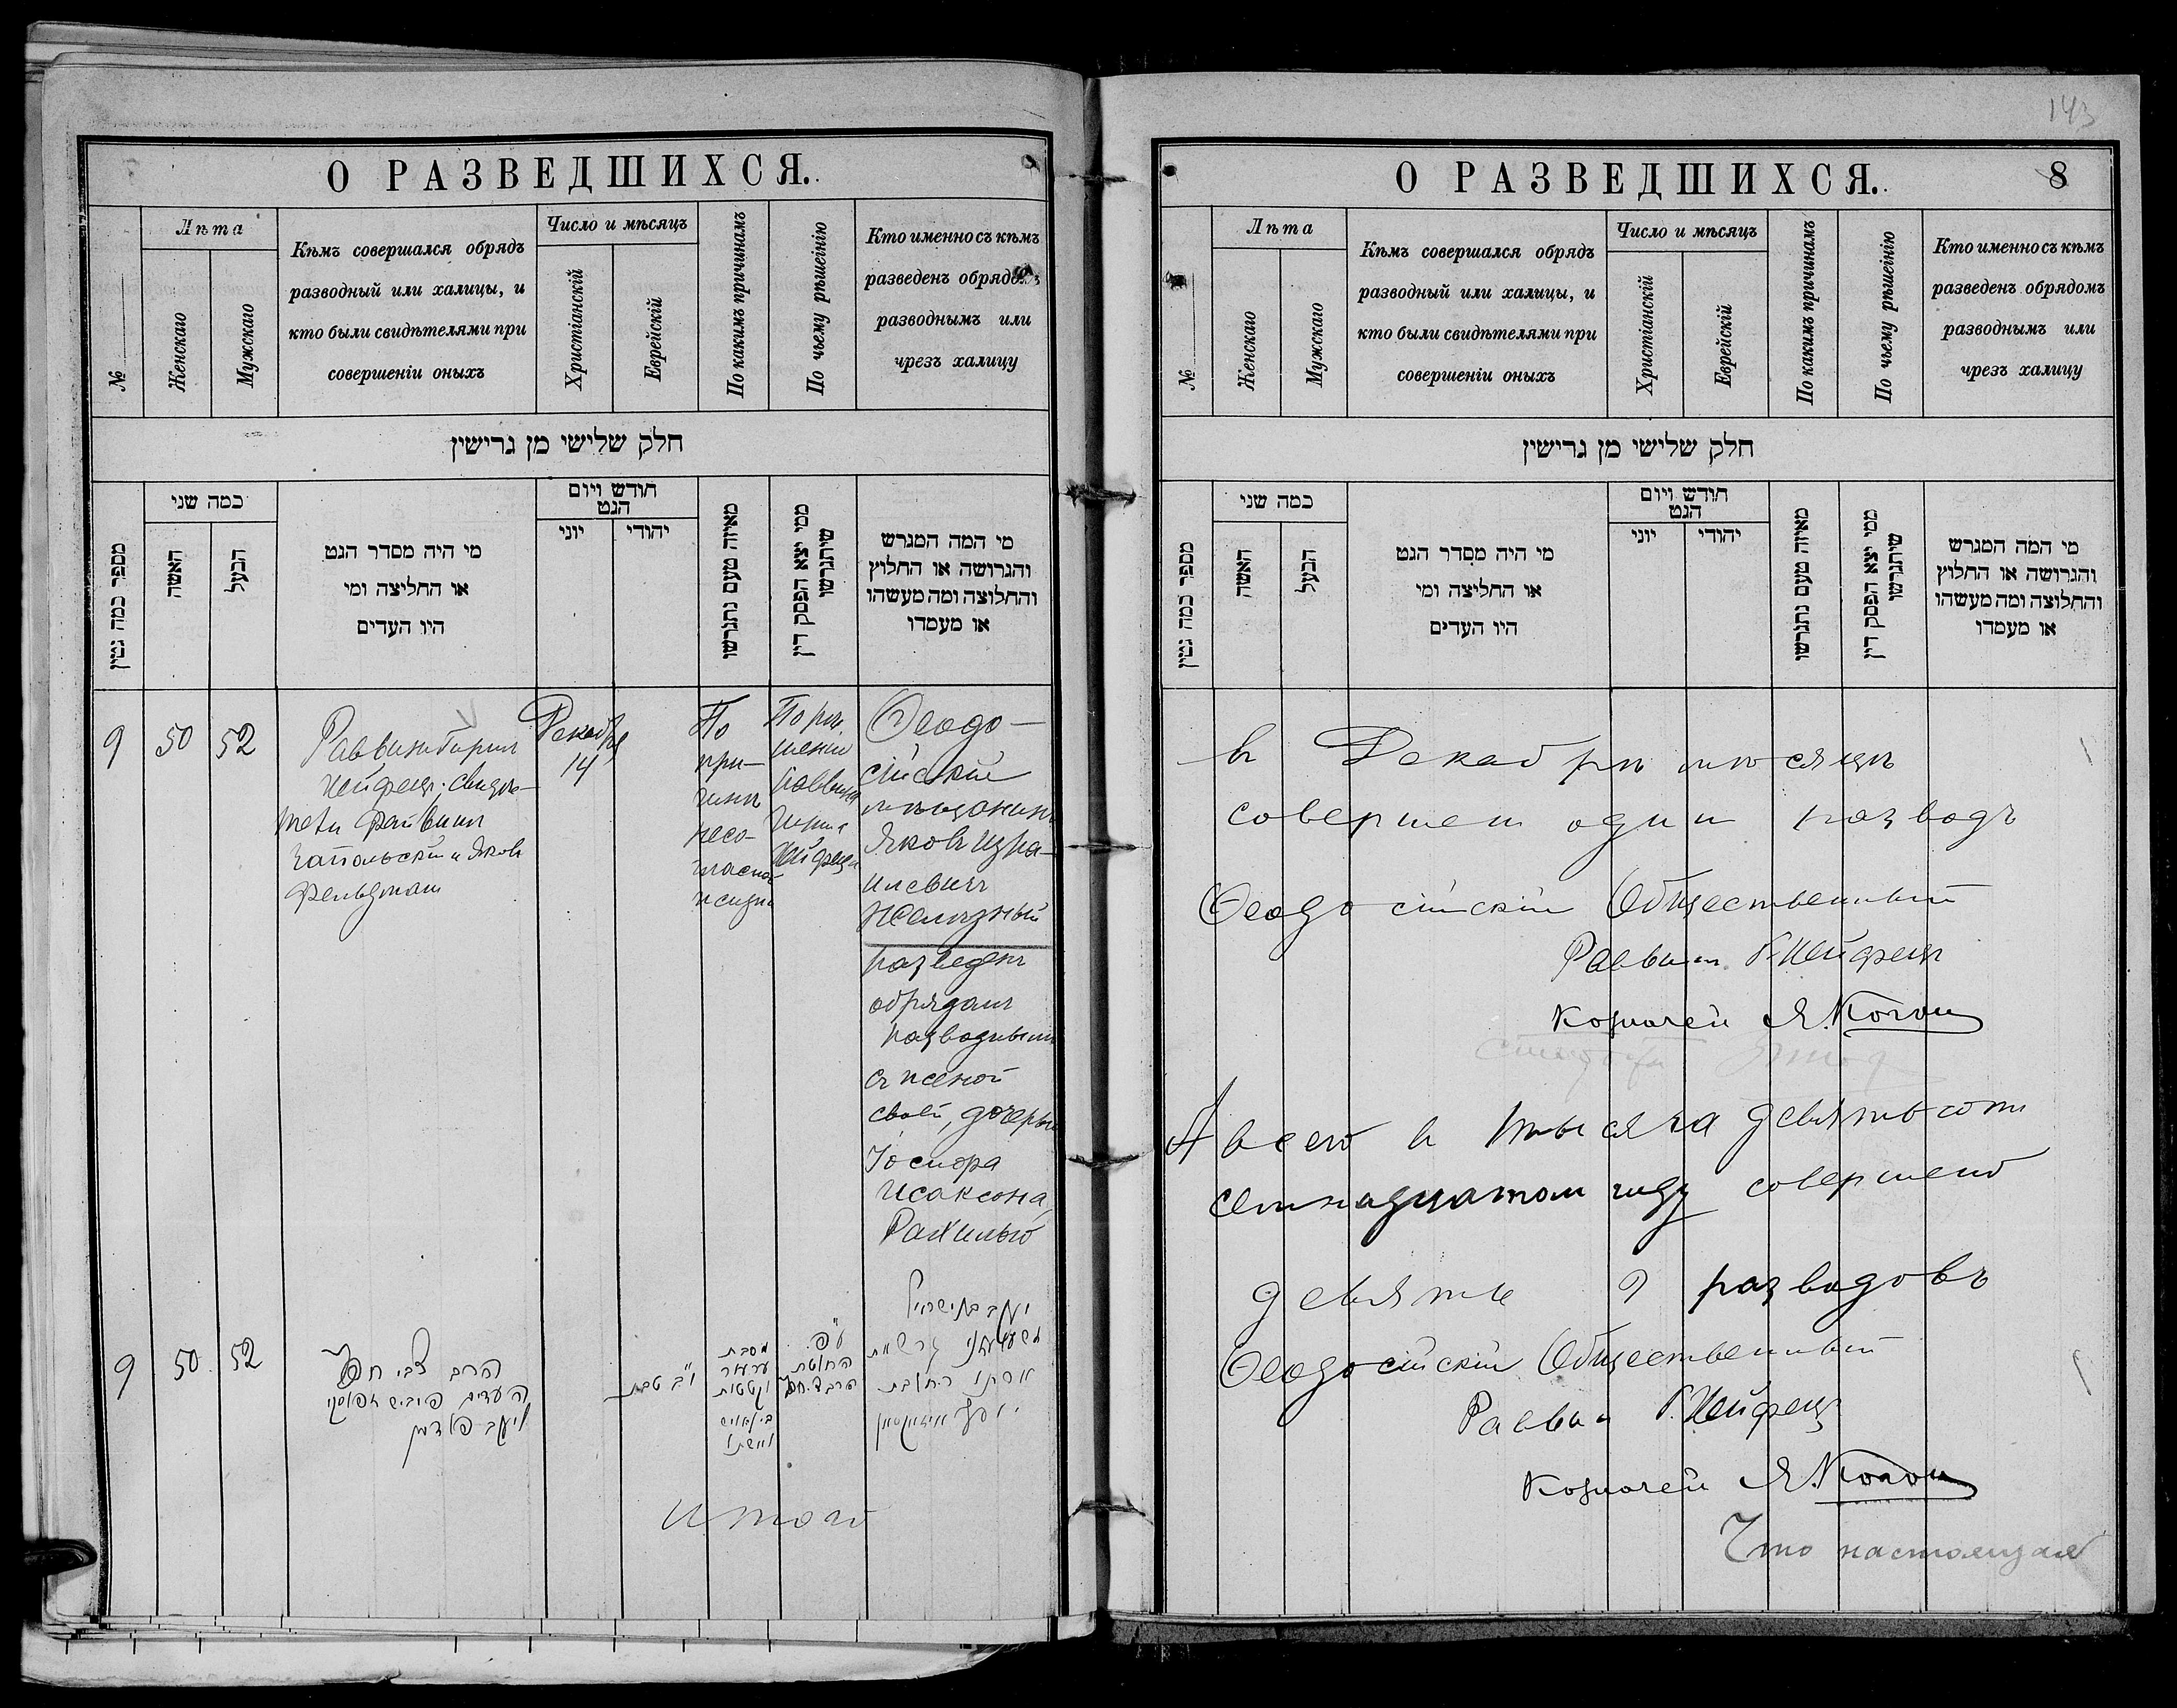 О РАЗВЕДШИХСЯ.
№
Лѣта
Женскаго
Мужскаго
Кѣмъ совершался обрядъ
разводный или халицы, и
кто были свидѣтелями при
совершеніи оныхъ
Число и мѣсяцъ
Христіанскій
Еврейскій
По какимъ причинамъ
По чьему рѣшенію
Кто именно съ кѣмъ
разведенъ обрядомъ
разводнымъ или
чрезъ халицу
חלק שלישי מן גרישין
מספר כמה גטין
כמה שני
האשה
הבעל
מי היה מסדר הגט
או החליצה ומי
היו העדים
חודש ויום
הגט
יוני
יהודי
מאיזה טעם נתגרשו
ממי יצא הפסק דין
שיתגרשו
מי המה המגרש
והגרושה או החלוץ
והחלוצה ומה מעשהו
או מעמדו
9
50
52
Хейфецъ; свидѣ-
тели
и Яковъ
Фельдман
Декабря
14
По
при-
чинѣ
несо-
гласной
жизни
По рѣ-
шенію
Раввина
Хейфеца
Ѳеодо-
сійскій
мѣщанинъ
Яковъ Изра-
илевичъ
Желѣзный
разведенъ
обрядомъ
разводнымъ
съ женой
своей, дочерью
Іосифа
Исаксона,
Рахилью
9
50
52
הרב צבי חפץ
העדים פייביש
יעקב פעלדמן
י"ב טבת
מסבת
וקטטות
ואשתו
ע"פ
הרב צ. חפץ
יעקב בן ישראל
אשתו
יוסף אייזיקסאן
Итого
143
О РАЗВЕДШИХСЯ.
8
№
Лѣта
Женскаго
Мужскаго
Кѣмъ совершался обрядъ
разводный или халицы, и
кто были свидѣтелями при
совершеніи оныхъ
Число и мѣсяцъ
Христіанскій
Еврейскій
По какимъ причинамъ
По чьему рѣшенію
Кто именно съ кѣмъ
разведенъ обрядомъ
разводнымъ или
чрезъ халицу
חלק שלישי מן גרישין
מספר כמה גטין
כמה שני
האשה
הבעל
מי היה מסדר הגט
או החליצה ומי
היו העדים
חודש ויום
הגט
יוני
יהודי
מאיזה טעם נתגרשו
ממי יצא הפסק דין
שיתגרשו
מי המה המגרש
והגרושה או החלוץ
והחלוצה ומה מעשהו
או מעמדו
въ Декабрѣ мѣсяцѣ
совершен один разводъ
Ѳеодосійскій Общественный
Раввин Г. Хейфецъ
Козначей Я. Коган
А всего в тысяча девятьсотъ
семнадцатом году совершено
девять 9 разводовъ
Ѳеодосійскій Общественный
Раввин Г. Хейфецъ
Козначей Я. Коган
Что настоящая